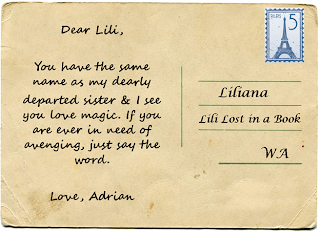 Dear Lili,
You have the same
name as my dearly
departed sister & I see
you love magic. If you
are ever in need of
avenging, just say the
word.
Love, Adrian
PARIS
5
Liliana
Lili Lost in a Book
WA